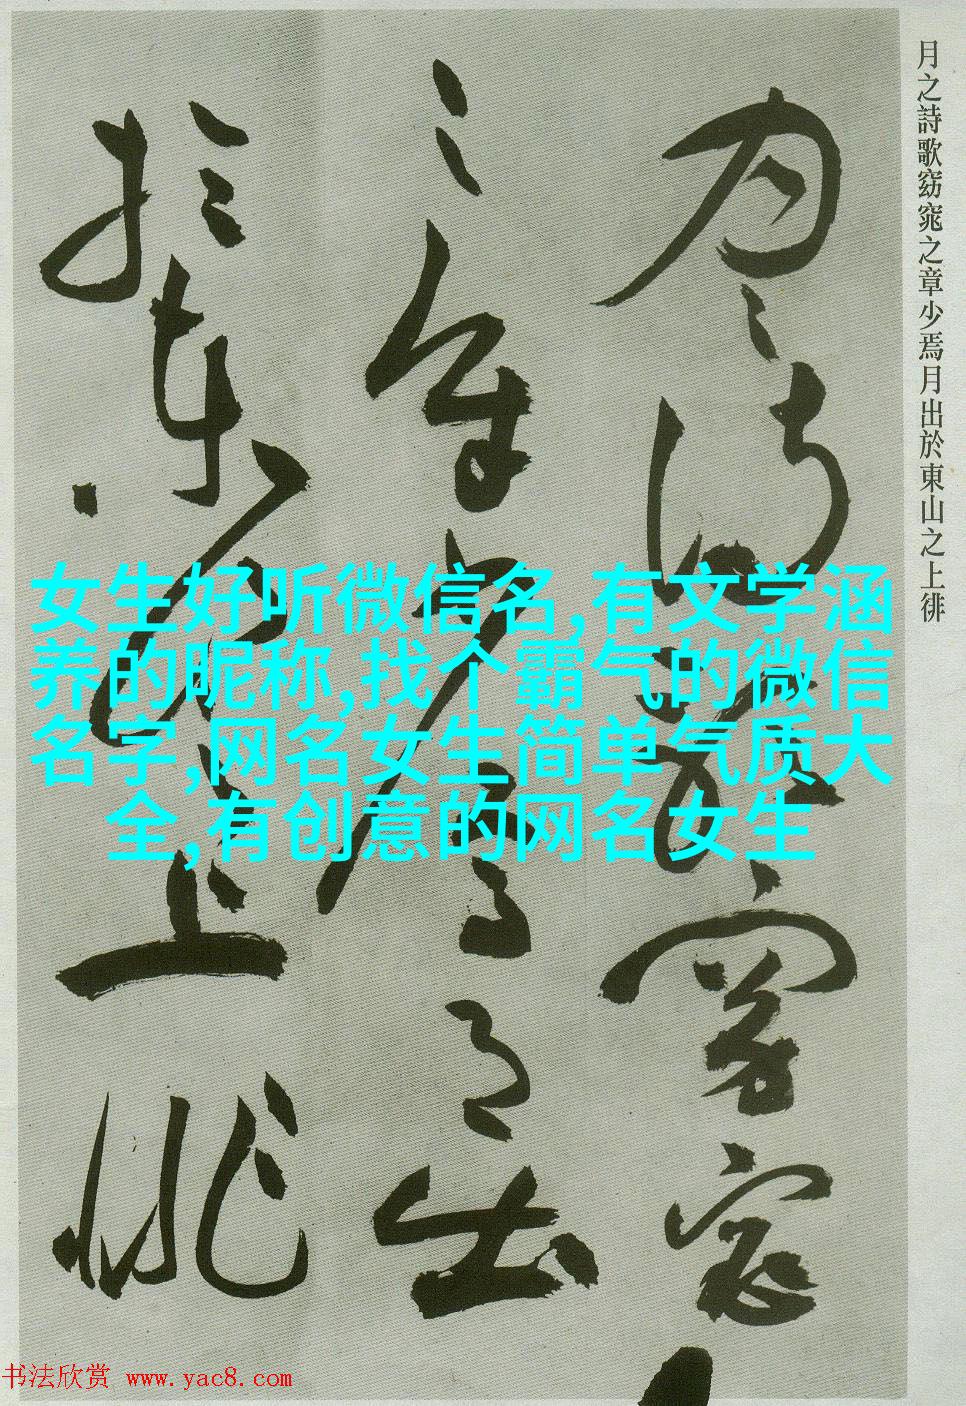 月之詩歌窈窕之章少焉月出於東山之上徘
月之詩歌窈窕
之章少焉月出
於東山之上徘
女生好听微信名,有文学涵
养的昵称,找个霸气的微信
名字,网名女生简单气质大
全,有创意的网名女生
书法欣赏 www.yac8.com